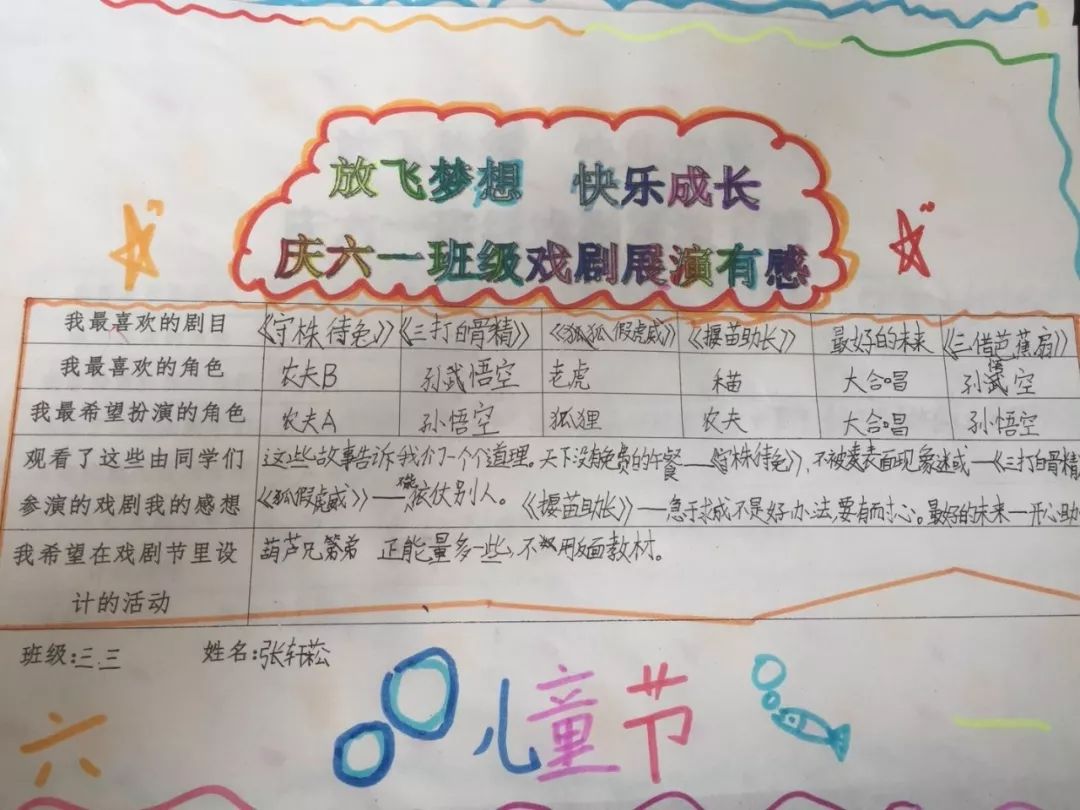 放飞梦想 快乐成长
庆六一班级戏剧展演有感
我最喜欢的剧目 《守株待兔》 《三打白骨精》 《狐狐假虎威》 《揠苗助长》 最好的未来 《三借芭蕉扇》
我最喜欢的角色 农夫B 孙武悟空 老虎 苗 大合唱 孙悟空
我最希望扮演的角色 农夫A 孙悟空 狐狸 农夫 大合唱 孙悟空
观看了这些由同学们 这些故事告诉我们一个个道理。天下没有免费的午餐——《守株待兔》,不被表面现象迷惑—《三打白骨精
参演的戏剧我的感想 《狐假虎威》——依仗别人。 《揠苗助长》——急于求成不是好办法,要有耐心。最好的未来—开心
我希望在戏剧节里设 葫芦兄弟 正能量多一些,不用反面教材。
计的活动
班级:三.三 姓名:张轩菘
六 儿童节 一